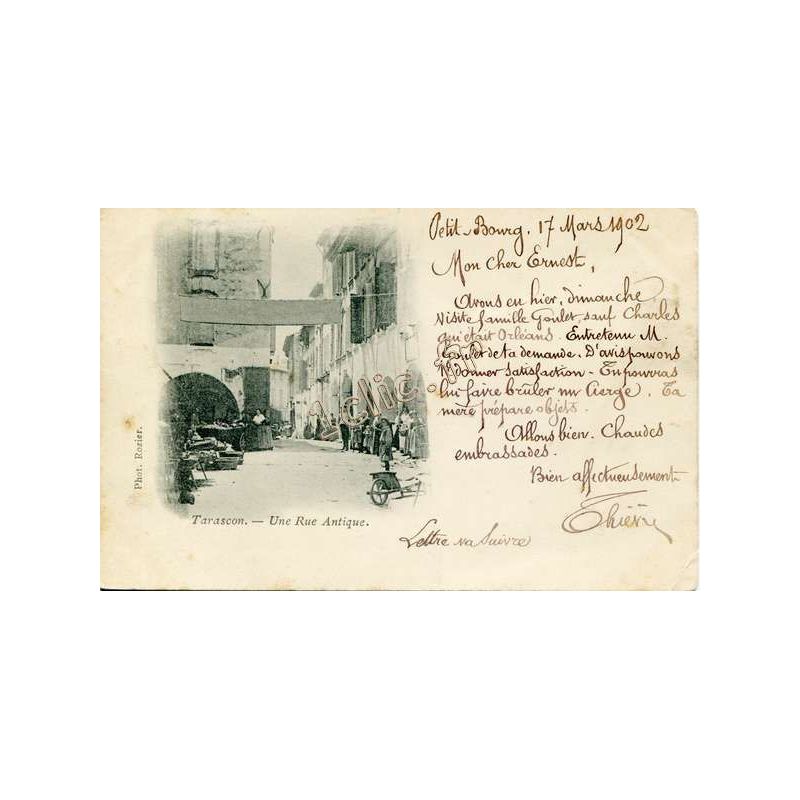 Petit-Bourg, 17 Mars 1902
Mon cher Ernest,
Avons eu hier, dimanche
visite famille Goulet sauf Charles
qui était Orléans. Entretenu M.
Goulet de ta demande. D'avis pouvons
donner satisfaction - Tu pourras
lui faire brûler un Cierge. Ta
mère prépare objets.
Allons bien. Chaudes
embrassades.
Bien affectueusement
Lettre va suivre
Phot. Rozier.
Tarascon. — Une Rue Antique.
1clic